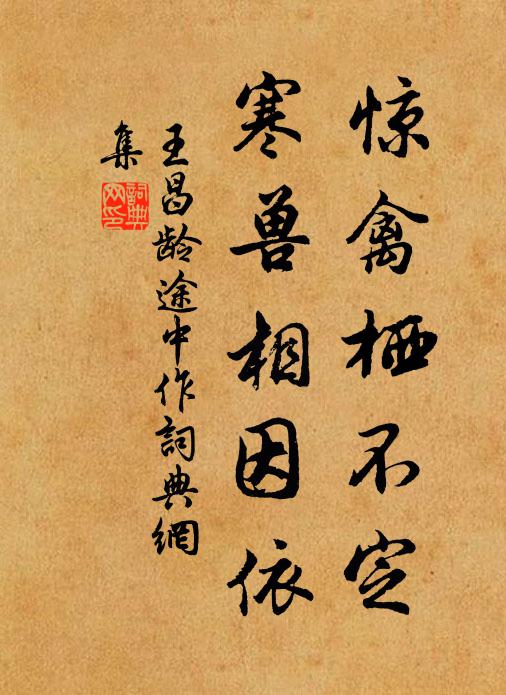 惊禽栖不定
寒兽相因依
王昌龄途中作詞典網
集
詞典
网印